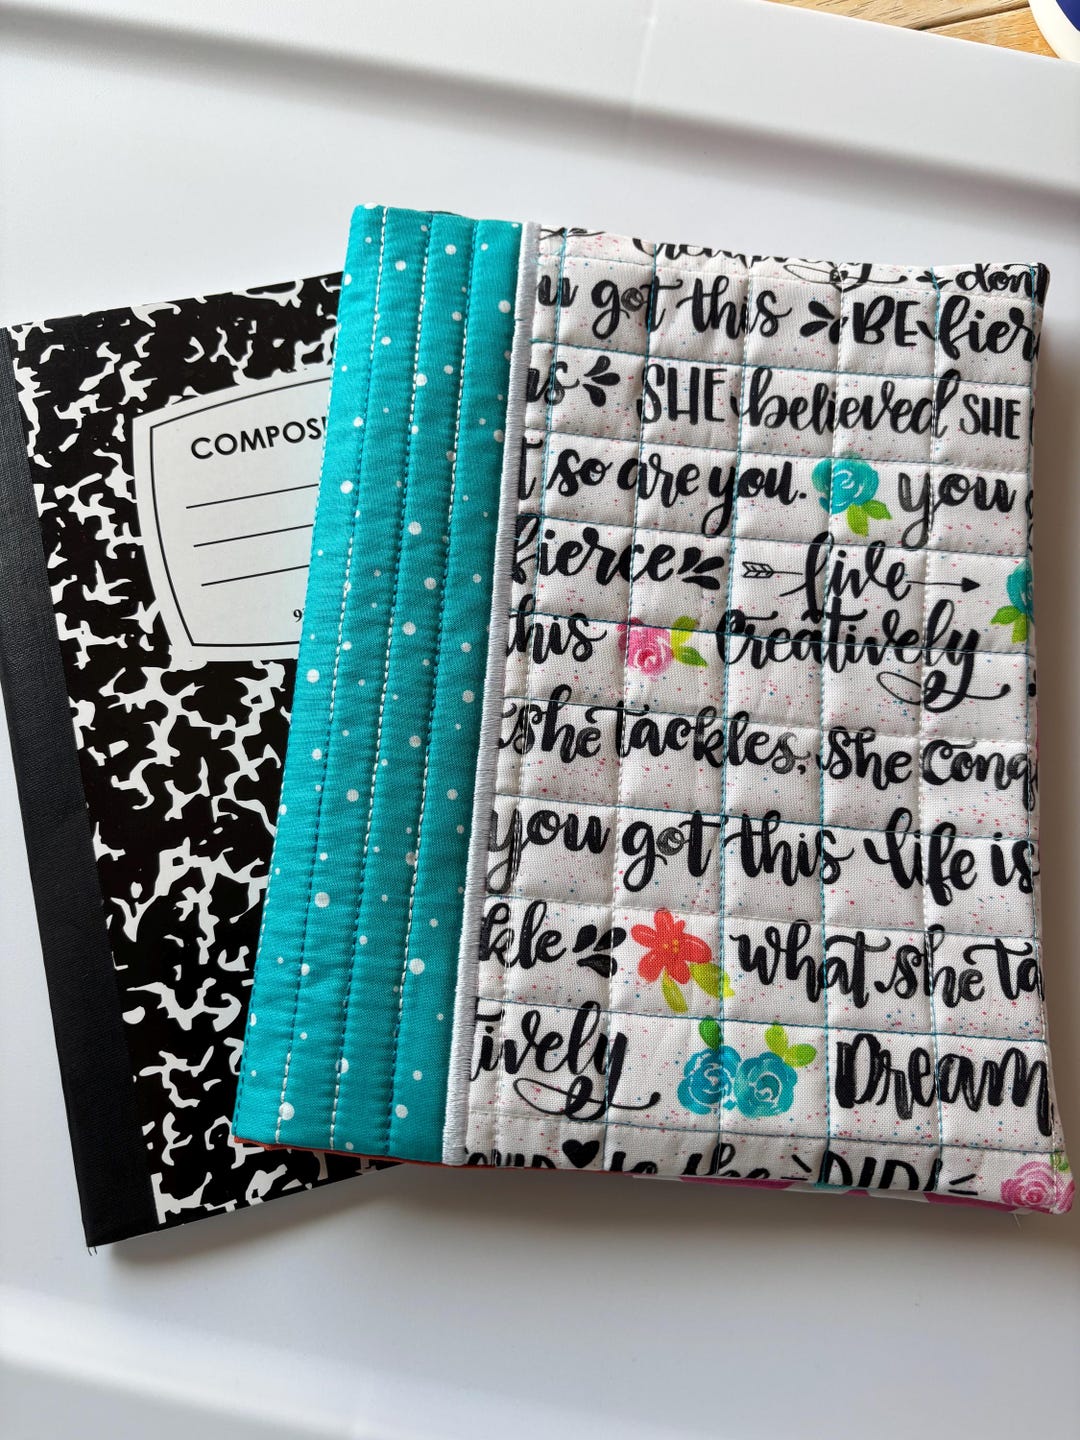 COMPOS
9
creatively don
u got this BE fier
us SHE believed SHE
t so are you. you
fierce live
this creatively
she tackles, She conq
you got this life is
kle what she ta
tively Dream
to she DID!